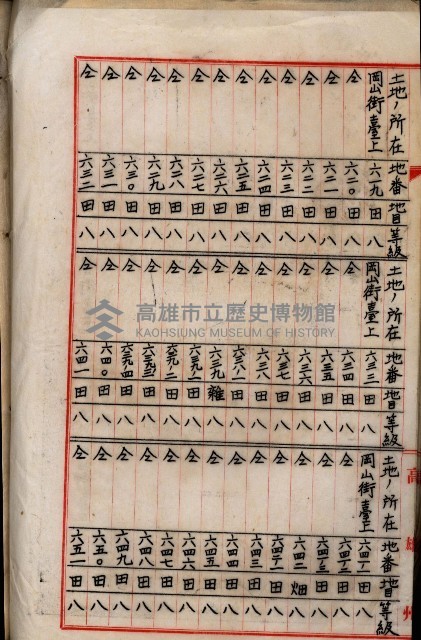 土地ノ所在 地番 地目 等級
岡山街臺上 六一九 田 八
仝 六二〇 田 八
仝 六二一 田 八
仝 六二二 田 八
仝 六二三 田 八
仝 六二四 田 八
仝 六二五 田 八
仝 六二六 田 八
仝 六二七 田 八
仝 六二八 田 八
仝 六二九 田 八
仝 六三〇 田 八
仝 六三一 田 八
仝 六三二 田 八
土地ノ所在 地番 地目 等級
岡山街臺上 六三三 田 八
仝 六三四 田 八
仝 六三五 田 八
仝 六三六 田 八
仝 六三七 田 八
仝 六三八 田 八
仝 六三八ノ一 田 八
仝 六三九 雜 八
仝 六三九ノ一 田 八
仝 六三九ノ二 田 八
仝 六三九ノ三 田 八
仝 六三九ノ四 田 八
仝 六四〇 田 八
仝 六四一 田 八
土地ノ所在 地番 地目 等級
岡山街臺上 六四一ノ一 田 八
仝 六四一ノ二 田 八
仝 六四一ノ三 田 八
仝 六四二 畑 八
仝 六四二ノ一 田 八
仝 六四三 田 八
仝 六四四 田 八
仝 六四五 田 八
仝 六四六 田 八
仝 六四七 田 八
仝 六四八 田 八
仝 六四九 田 八
仝 六五〇 田 八
仝 六五一 田 八
高雄州
高雄市立歷史博物館
KAOHSIUNG MUSEUM OF HISTORY